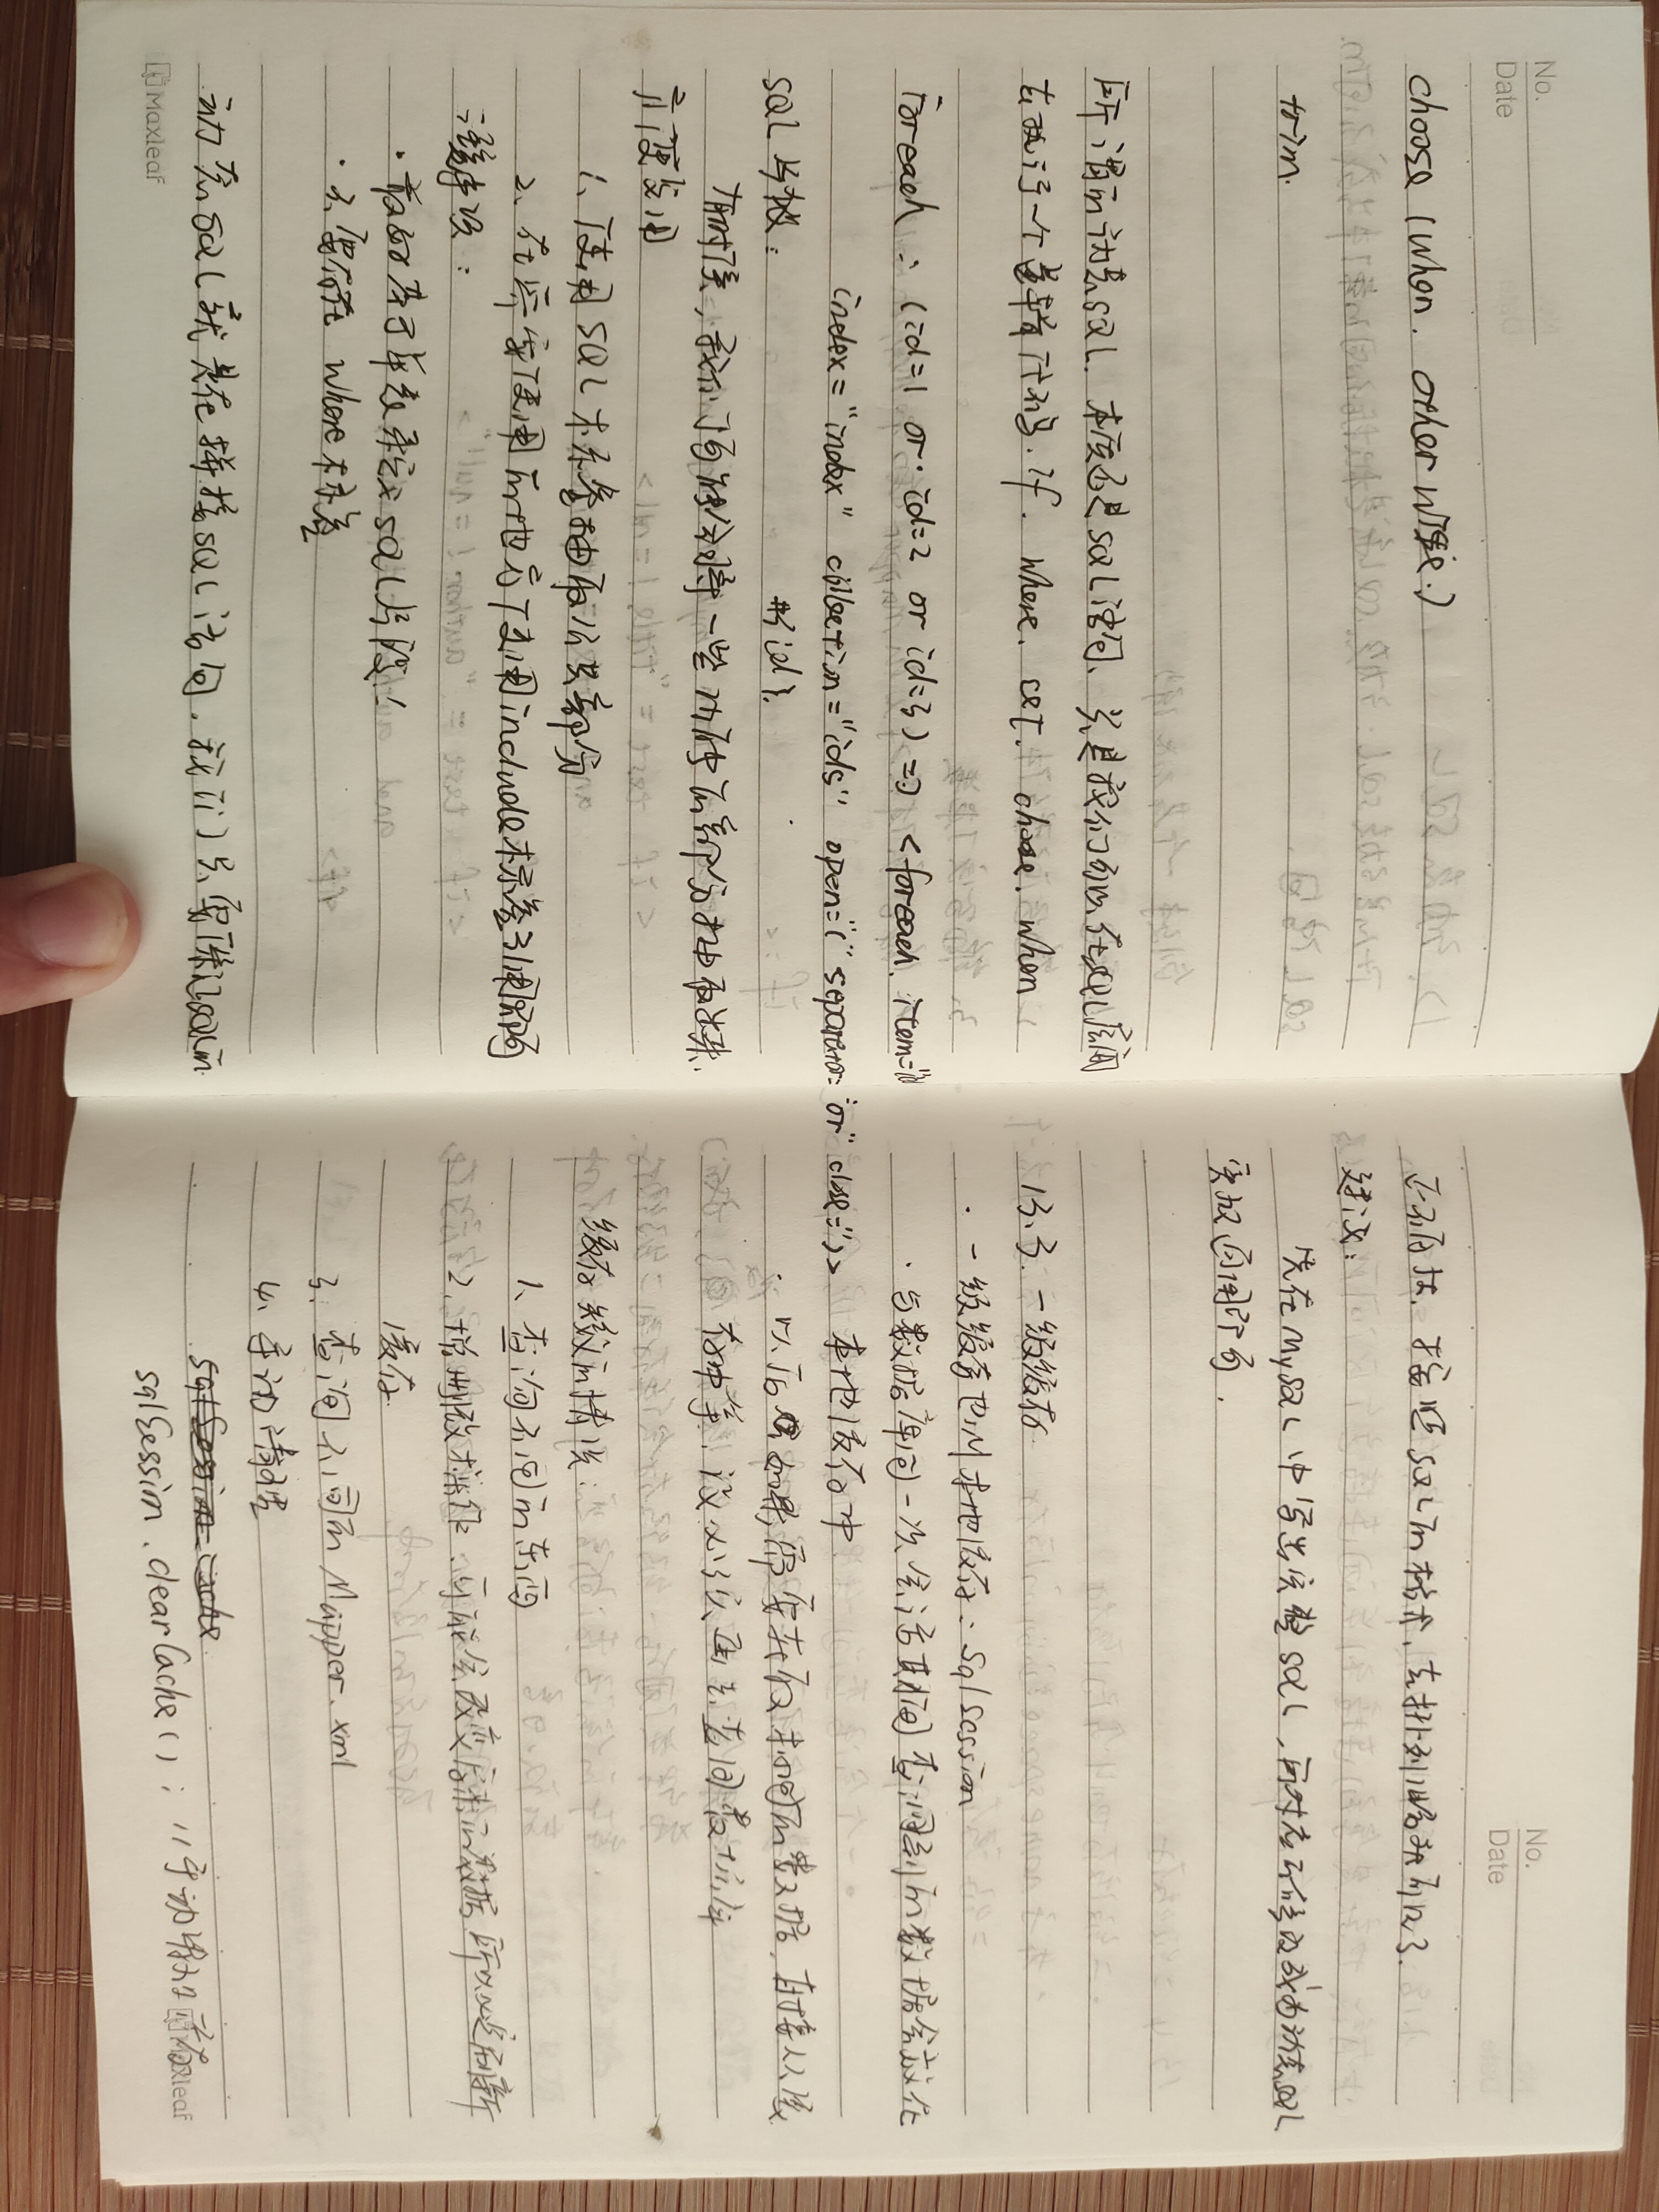 No.
Date
choose (when. otherwise.)
trim.
所谓的动态SQL. 本质还是SQL语句、只是我们可以在SQL层面
去执行一个逻辑代码. if. where. set. choose. when
foreach : (id=1 or id=2 or id=3) => <foreach. item="id"
index="index" collection="ids" open="(" separator="or" close=")">
#{id}.
SQL片段:
有时候,我们可能会将一些功能的部分抽取出来.
方便复用
1、使用SQL标签抽取公共部分
2、在需要使用的地方使用include标签引用即可
注意事项:
· 最好基于单表来定义SQL片段!
· 不要存在 where 标签
动态SQL就是在拼接SQL语句. 我们只要保证SQL的
Maxleaf
No.
Date
正确性. 按照SQL的格式. 去排列组合就可以了.
建议:
先在Mysql中写出完整SQL,再对应的修改成为动态SQL
实现通用即可.
13.3. 一级缓存
· 一级缓存也叫本地缓存: SqlSession
· 与数据库同一次会话期间查询到的数据会放在
本地缓存中
· 以后如果需要获取相同的数据,直接从缓
存中拿. 没必须再去查询数据库
缓存失效的情况:
1、查询不同的东西
2、增删改操作.可能会改变原来的数据所以必定会刷新
缓存
3、查询不同的Mapper.xml
4、手动清理
sqlSession.cache
sqlSession.clearCache(); //手动清理缓存
Maxleaf